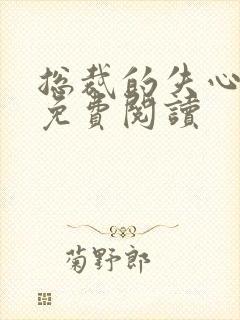 总裁的失心
免費閱讀
菊野郎